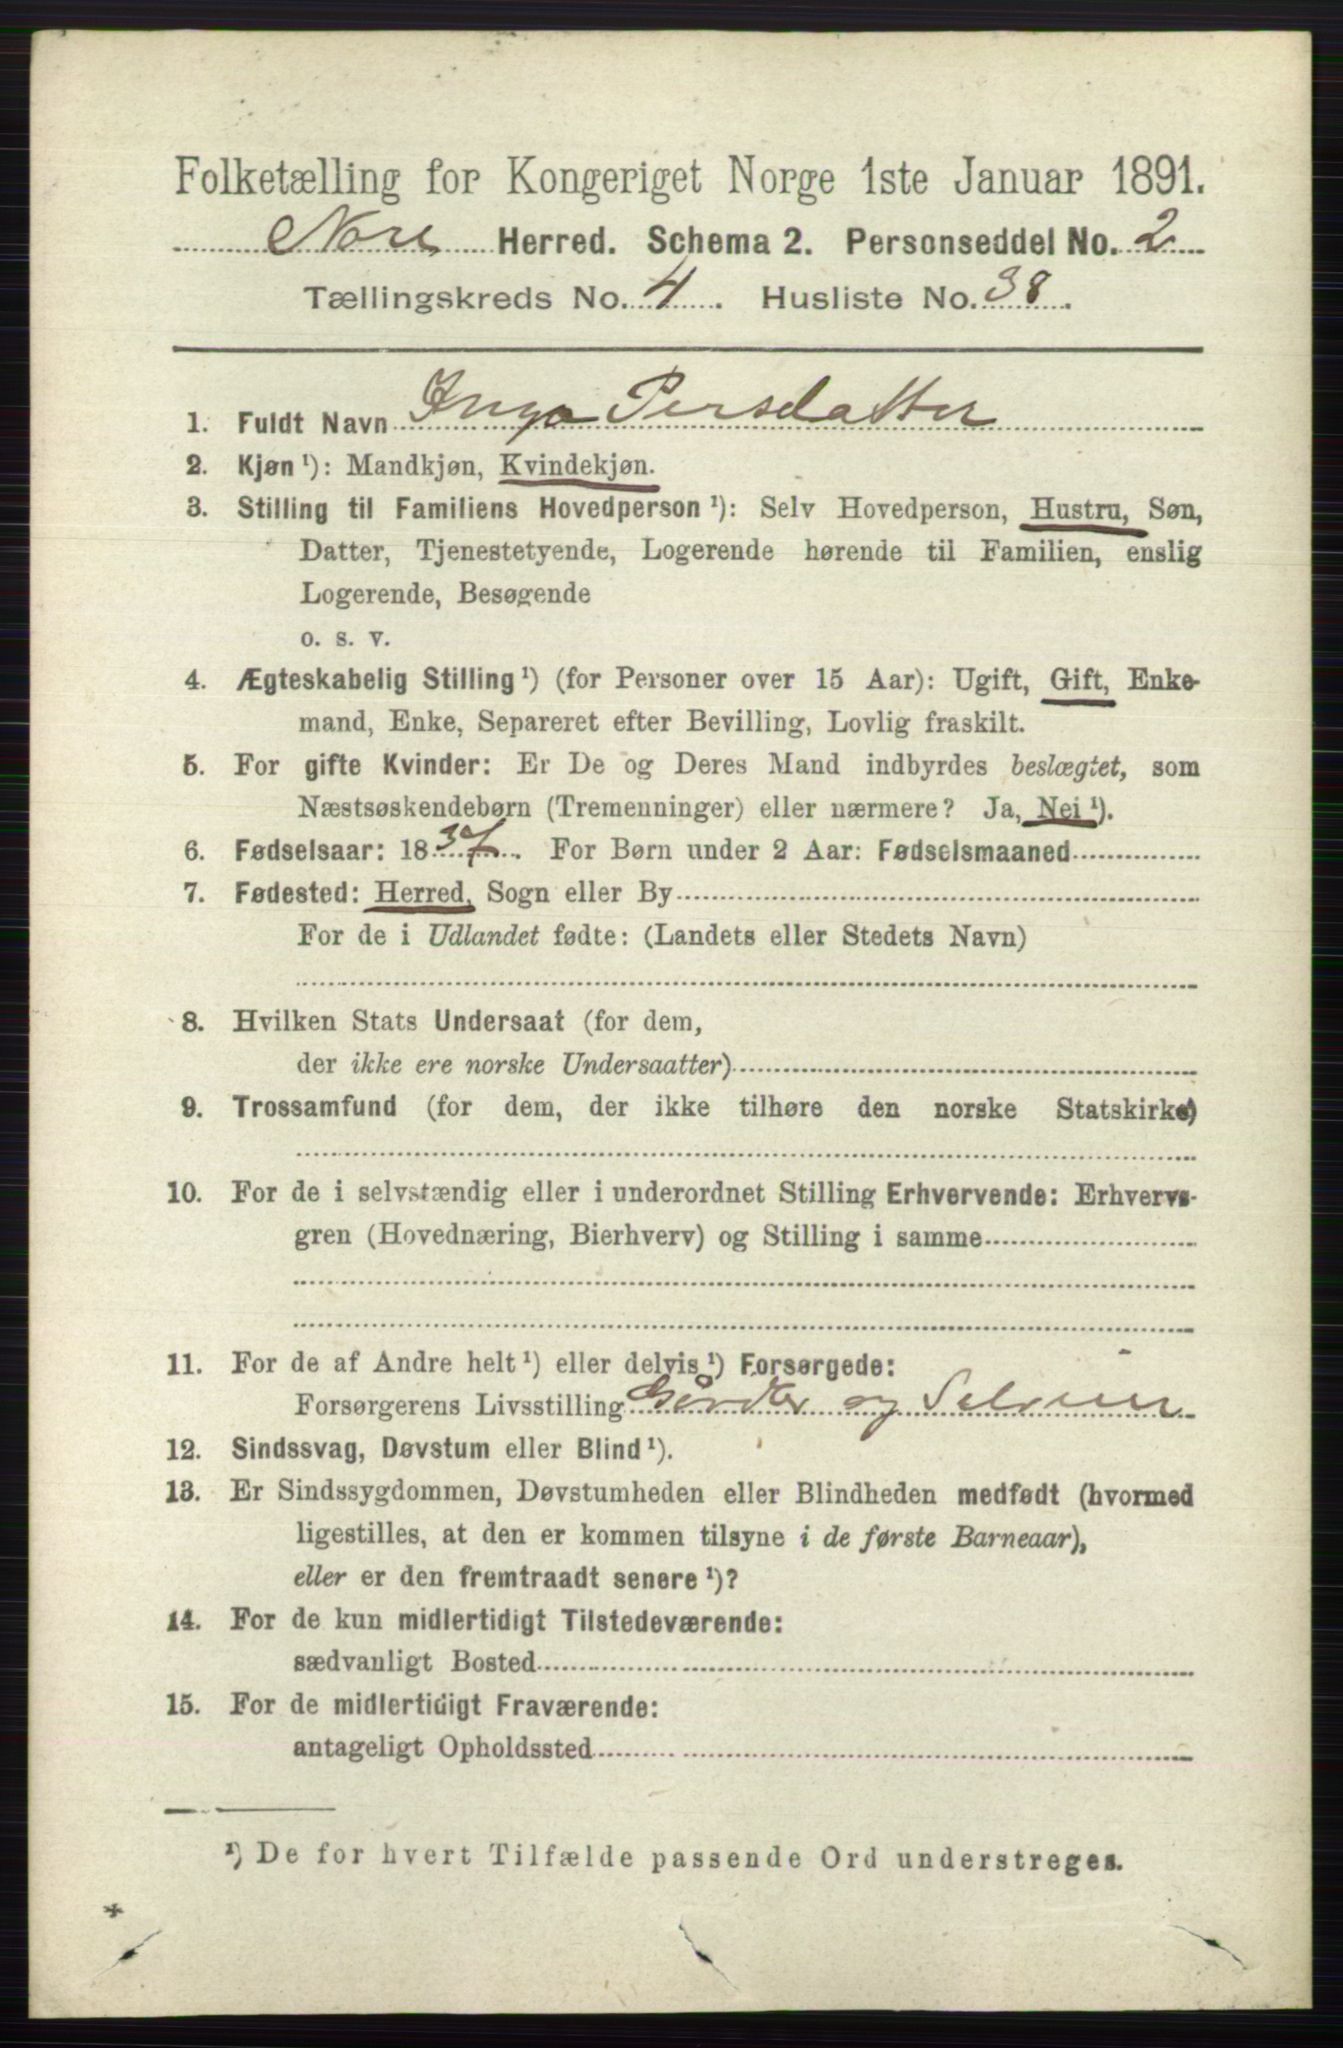 Folketælling for Kongeriget Norge 1ste Januar 1891.
Nore Herred. Schema 2. Personseddel No. 2
Tællingskreds No. 4. Husliste No. 38.
1. Fuldt Navn Inga Persdatter
2. Kjøn ¹): Mandkjøn, Kvindekjøn.
3. Stilling til Familiens Hovedperson ¹): Selv Hovedperson, Hustru, Søn,
Datter, Tjenestetyende, Logerende hørende til Familien, enslig
Logerende, Besøgende
o. s. v.
4. Ægteskabelig Stilling ¹) (for Personer over 15 Aar): Ugift, Gift, Enke-
mand, Enke, Separeret efter Bevilling, Lovlig fraskilt.
5. For gifte Kvinder: Er De og Deres Mand indbyrdes beslægtet, som
Næstsøskendebørn (Tremenninger) eller nærmere? Ja, Nei ¹).
6. Fødselsaar: 1837. For Børn under 2 Aar: Fødselsmaaned
7. Fødested: Herred, Sogn eller By
For de i Udlandet fødte: (Landets eller Stedets Navn)
8. Hvilken Stats Undersaat (for dem,
der ikke ere norske Undersaatter)
9. Trossamfund (for dem, der ikke tilhøre den norske Statskirke)
10. For de i selvstændig eller i underordnet Stilling Erhvervende: Erhvervs-
gren (Hovednæring, Bierhverv) og Stilling i samme
11. For de af Andre helt ¹) eller delvis ¹) Forsørgede:
Forsørgerens Livsstilling og Seleier
12. Sindssvag, Døvstum eller Blind ¹).
13. Er Sindssygdommen, Døvstumheden eller Blindheden medfødt (hvormed
ligestilles, at den er kommen tilsyne i de første Barneaar),
eller er den fremtraadt senere ¹)?
14. For de kun midlertidigt Tilstedeværende:
sædvanligt Bosted
15. For de midlertidigt Fraværende:
antageligt Opholdssted
¹) De for hvert Tilfælde passende Ord understreges.